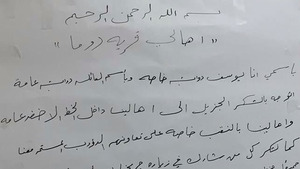 بسم الله الرحمن الرحيم
" اهالي قرية دوما "
باسمي انا يوسف دوابشة خاصه وباسم عائلة دوابشة عامة
اتوجه بالشكر الجزيل الى اهالينا داخل الخط الاخضر عامة
واهالينا بالنقب خاصة على تعاونهم الدؤوب المستمر معنا
كما نشكر كل من شارك في زيارة